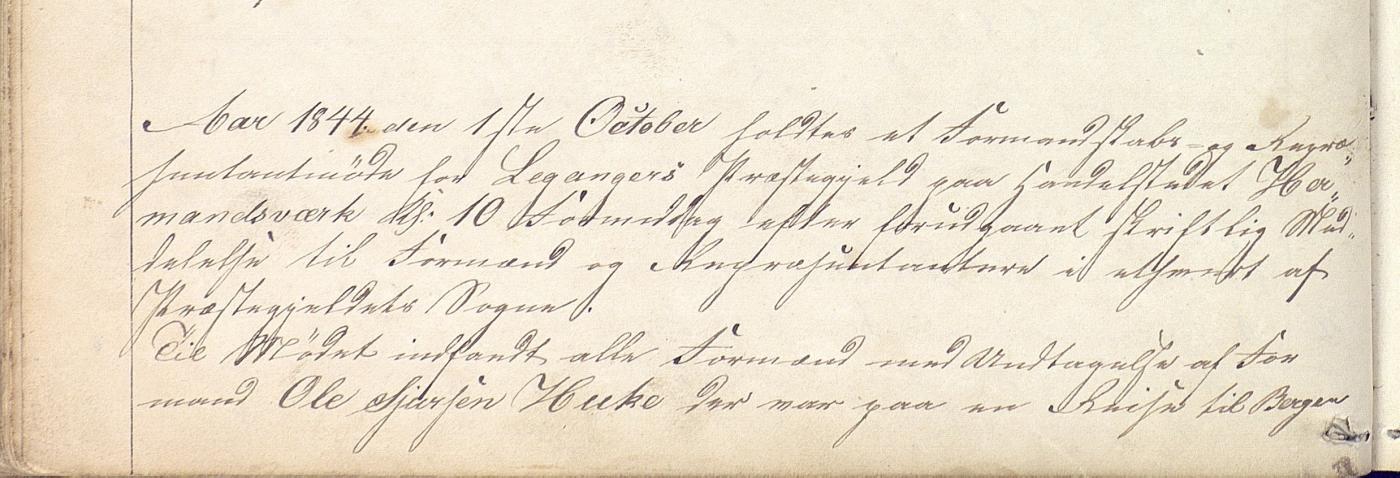 Aar 1844. den 1ste October holdtes et Formandskabs- og Repræ-
sentantmøde for Leganger's Præstegjeld paa Handelstedet Her-
mandsværk Kl. 10 Formiddag efter forudgaaet skriftlig Med-
delelse til Formænd og Repræsentantere i ethvert af
Præstegjeldets Sogne.
Til Mødet indfandt alle Formænd med Undtagelse af For
mand Ole Husken der var paa en Reise til Bergen